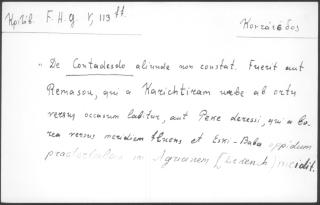 Κριτόβ. F. H. g. V, 113 ff.
Κοντάσεδος
"De Contadesdo aliunde non constat. Fuerit aut
Remasou, qui a Karichtiram urbe ab ortu
versus occasum labitur, aut Peke deressi, qui a bo-
rea versus meridiem fluens et Eski-Baba oppidum
praeterlabens in Agrianem [Erkench] incidit.